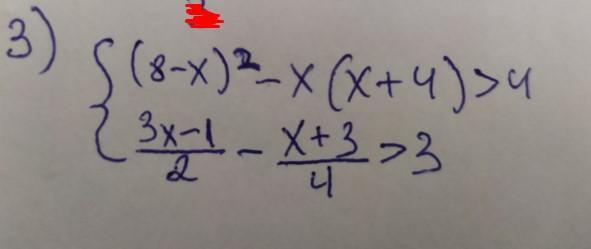 3) { (8-x)² - x(x+4) > 4
(3x-1)/2 - (x+3)/4 > 3